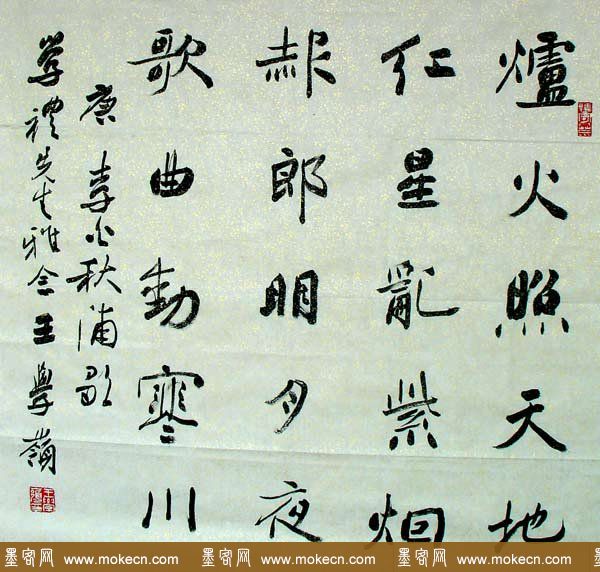 爐火照天地
紅星亂紫烟
赧郎明月夜
歌曲動寒川
唐 李白秋浦歌
學禮先生雅念 王學嶺
墨客网 www.mokecn.com 墨客网 www.mokecn.com 墨客网 www.mokecn.com